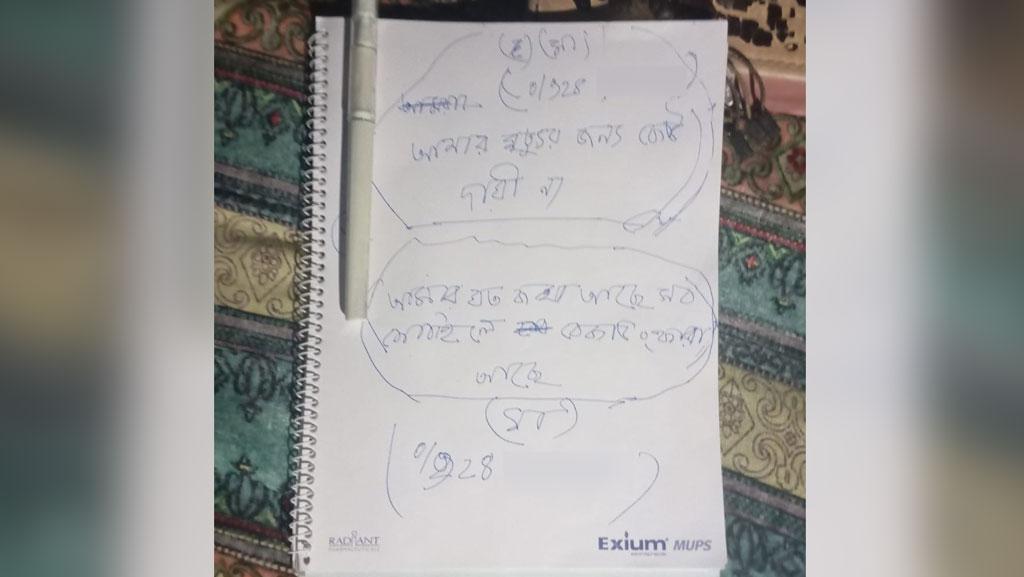 (হ) (আ)
(01928
আমার মৃত্যুর জন্য কেউ
দায়ী না
আমার যত কথা আছে সব
মোবাইলে রেকর্ড করা
আছে
(সব)
(01928 )
RADIANT
PHARMACEUTICALS
Exium MUPS